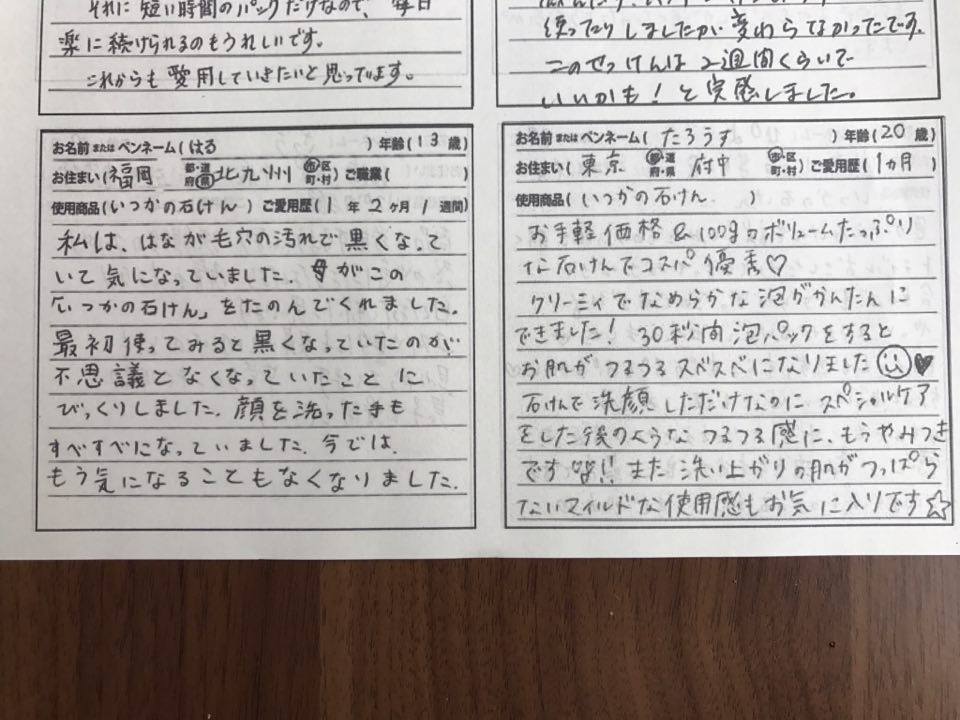 それに短い時間のパックだけなので、毎日
楽に続けられるのもうれしいです。
これからも愛用していきたいと思ってます。
使ったりしましたが変わらなかったです。
このせっけんは2週間くらいで
いいかも!と実感しました。
お名前またはペンネーム(はる)年齢(13歳)
お住まい(福岡 都・道府・県 北九州 市・区町・村)ご職業( )
使用商品(いつかの石けん)ご愛用歴(1年2ヶ月1週間)
私は、はなが毛穴の汚れで黒くなって
いて気になっていました。母がこの
「いつかの石けん」をたのんでくれました。
最初使ってみると黒くなっていたのが
不思議となくなっていたことに
びっくりしました。顔を洗った手も
すべすべになっていました。今では
もう気になることもなくなりました。
お名前またはペンネーム(たろうす)年齢(20歳)
お住まい(東京 都・道府・県 府中 市・区町・村)ご愛用歴(1カ月)
使用商品(いつかの石けん)
お手軽価格&100gのボリュームたっぷり
な石けんでコスパ優秀♡
クリーミィでなめらかな泡がかんたんに
できました!30秒間泡パックをすると
お肌がつるつるスベスベになりました☺♥
石けんで洗顔しただけなのに、スペシャルケア
をした後のようなつるつる感に、もうやみつき
ですよ!!また洗い上がりの肌がつっぱら
ないマイルドな使用感もお気に入りです☆